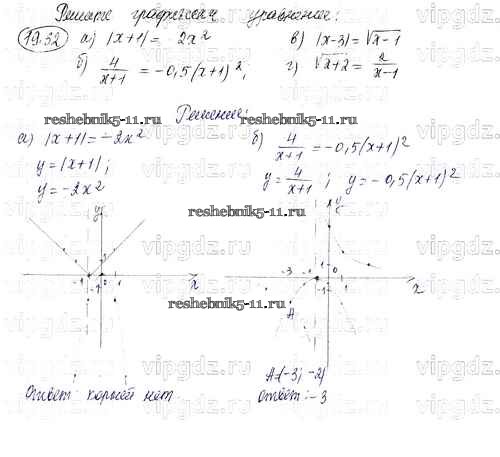 Решите графически уравнение:
19.32 а) |x+1| = -2x² в) |x-3| = √x-1
б) 4/x+1 = -0,5(x+1)²; г) √x+2 = 2/x-1
reshebnik5-11.ru Решение: reshebnik5-11.ru
а) |x+1| = -2x² б) 4/x+1 = -0,5(x+1)²
y = |x+1|; y = 4/x+1; y = -0,5(x+1)²
y = -2x²
reshebnik5-11.ru
y y
-3 1 0
-1 -1 0 1 x -1 x
reshebnik5-11.ru
A
A(-3; -2)
Ответ: корней нет Ответ: -3
vipgdz.ru